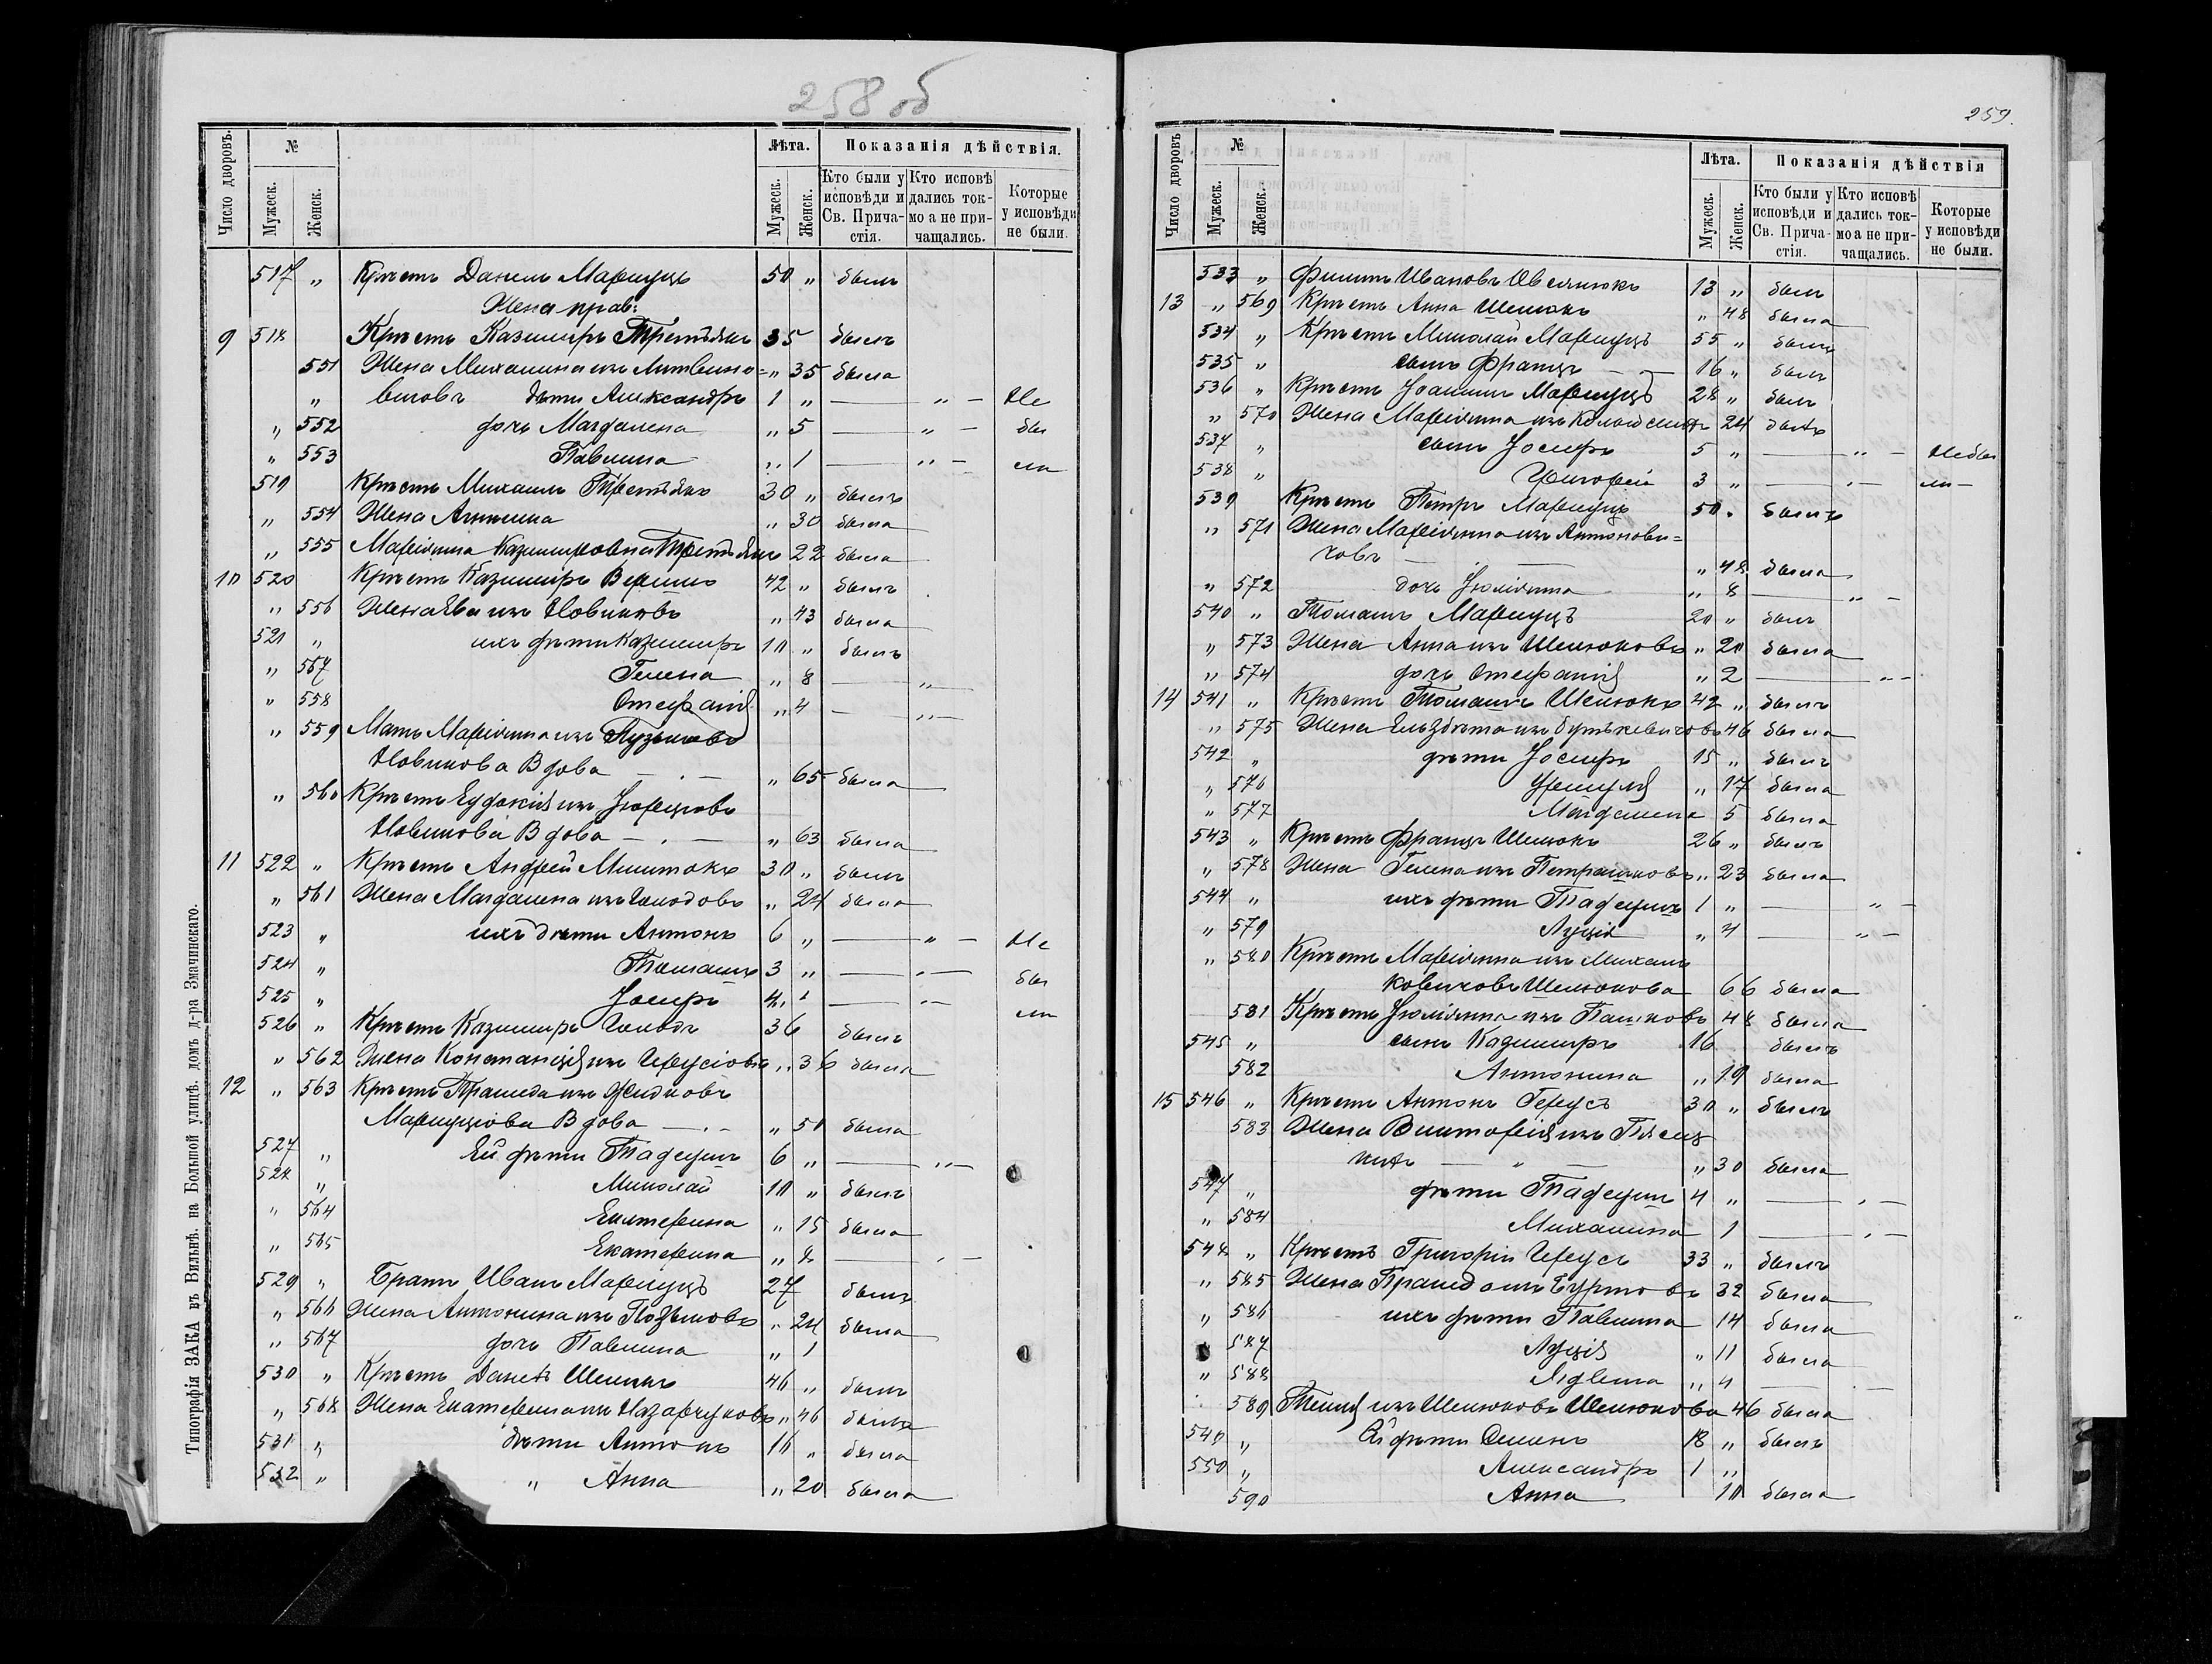 258 об
Число дворовъ.
№
Мужеск.
Женск.
Лѣта.
Мужеск.
Женск.
Показанія дѣйствія.
Кто были у исповѣди и Св. Прича-стія.
Кто исповѣ дались ток-мо а не при-чащались.
Которые у исповѣди не были.
517 „ Крест Данель Марцуцъ 50 „ былъ
Жена прав:
9 518 Крест Казимиръ Третьякъ 35 былъ
551 Жена Михалина изъ Литвино= „ 35 была
„ вичовъ дѣти Александръ 1 „ — „ — Не
„ 552 дочь Магдалена „ 5 — „ — бы
„ 553 Павлина „ 1 — „ — ли
519 Крест Михаилъ Третьякъ 30 „ былъ
„ 554 Жена Анелина „ 30 была
„ 555 Маріянна Казимировна Третьякъ 22 была
10 520 Крест Казимиръ 42 „ былъ
„ 556 Жена Ева изъ Новиковъ „ 43 была
521 „ ихъ дѣти Казимиръ 10 „ былъ
„ 557 Гелена „ 8 — „
„ 558 Стефанія „ 4 — „ —
„ 559 Мать Маріянна изъ
Новикова Вдова — . — „ 65 была
„ 560 Крест Евдокія изъ
Новикова Вдова — . — „ 63 была
11 522 „ Крест Андрей 30 „ былъ
„ 561 Жена Магдалена изъ „ 24 была
523 „ ихъ дѣти Антонъ 6 „ — „ — Не
524 „ Томашъ 3 „ — . — бы
525 „ Іосифъ — . — ли
526 „ Крест Казимиръ 36 былъ
„ 562 Жена Констанція изъ „ 36 была
12 „ 563 Крест изъ Жидковъ
Марцуцова Вдова — . — „ 50 была
527 „ Ей дѣти Тадеушъ 6 „ — „ —
528 „ Миколай 10 „ былъ
„ 564 Екатерина „ 15 была
„ 565 Екатерина „ 8 — . —
529 „ Братъ Иванъ Марцуцъ 27 былъ
„ 566 Жена Антонина изъ „ 24 была
„ 567 дочь Павлина „ 1
530 „ Крест Данель 46 „ былъ
„ 568 Жена Екатерина изъ Назарчуковъ „ 46 была
531 „ дѣти Антонъ 16 „ была
532 „ „ Анна „ 20 была
Типографія ЗАКА въ Вильнѣ. на. Большой улицѣ. домъ д-ра Змачинскаго.
259.
Число дворовъ
№
Мужеск.
Женск.
Лѣта.
Мужеск.
Женск.
Показанія дѣйствія
Кто были у исповѣди и Св. Прича-стія.
Кто исповѣ дались ток-мо а не при-чащались.
Которые у исповѣди не были.
533 „ Филипъ Ивановъ Овсянюкъ 13 „ былъ
13 „ 569 Крест Анна Шелюкъ „ 48 была
534 „ Крест Миколай Марцуцъ 55 „ былъ
535 „ сынъ Францъ — „ — 16 „ былъ
536 „ Крест Іоаннъ Марцуцъ 28 „ былъ
„ 570 Жена Маріянна изъ 24
537 „ сынъ Іосифъ 5 „ — „ — Не бы
538 „ Григорій 3 „ — . — ли —
539 Крест Петръ Марцуцъ 50 . былъ
„ 571 Жена Маріянна изъ Антонови=
човъ — „ 48 была
„ 572 дочь Юліянна „ 8 — „ —
540 „ Томашъ Марцуцъ 20 „ былъ
„ 573 Жена Анна изъ Шелюковъ „ 20 была
„ 574 дочь Стефанія „ 2 — „ —
14 541 „ Крест Томашъ Шелюкъ 42 „ былъ
„ 575 Жена Ельзбета изъ Бутькевичовъ 46 была
542 „ дѣти Іосифъ 15 „ былъ
„ 576 Уршуля „ 17 была
„ 577 Магдалена 5 была
543 „ Крест Францъ Шелюкъ 26 „ былъ
„ 578 Жена Гелена изъ Петрашковъ „ 23 была
544 „ ихъ дѣти Тадеушъ 1 „ — „ —
„ 579 Луція „ 4 — „ —
„ 580 Крест Маріянна изъ Михаль
ковичовъ Шелюкова 66 была
581 Крест Юліянна изъ Пашковъ 48 была
545 „ сынъ Казимиръ 16 былъ
582 Антонина „ 19 была
15 546 „ Крест Антонъ Герусъ 30 „ былъ
583 Жена Викторія изъ
— „ — „ 30 была
547 „ дѣти Тадеушъ 4 „ — . —
„ 584 Михалина 1 — . —
548 „ Крест Григорій Герусъ 33 „ былъ
„ 585 Жена изъ 32 была
„ 586 ихъ дѣти Павлина 14 была
587 Луція „ 11 была
„ 588 Ядвига „ 4 — . —
589 изъ Шелюковъ Шелюкова 46 была
549 „ Ей дѣти Семенъ 18 „ былъ
550 „ Александръ 1 „
590 Анна 10 была